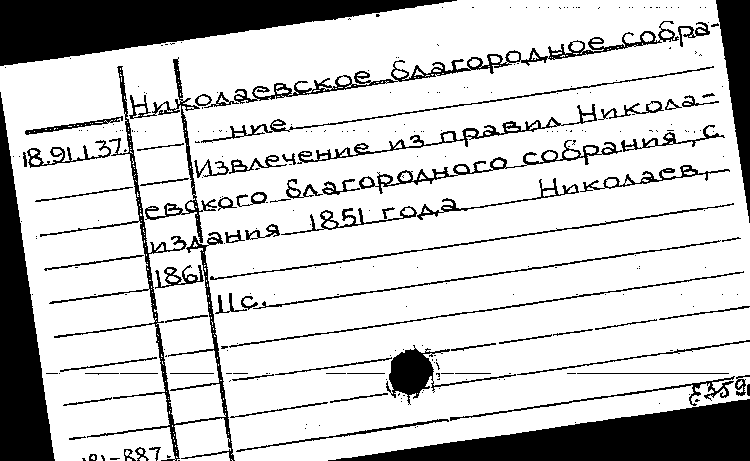 Николаевское благородное собра-
ние.
18.91.1.37.
Извлечение из правил Никола-
евского благородного собрания, с
издания 1851 года Николаев,
1861.
11с.